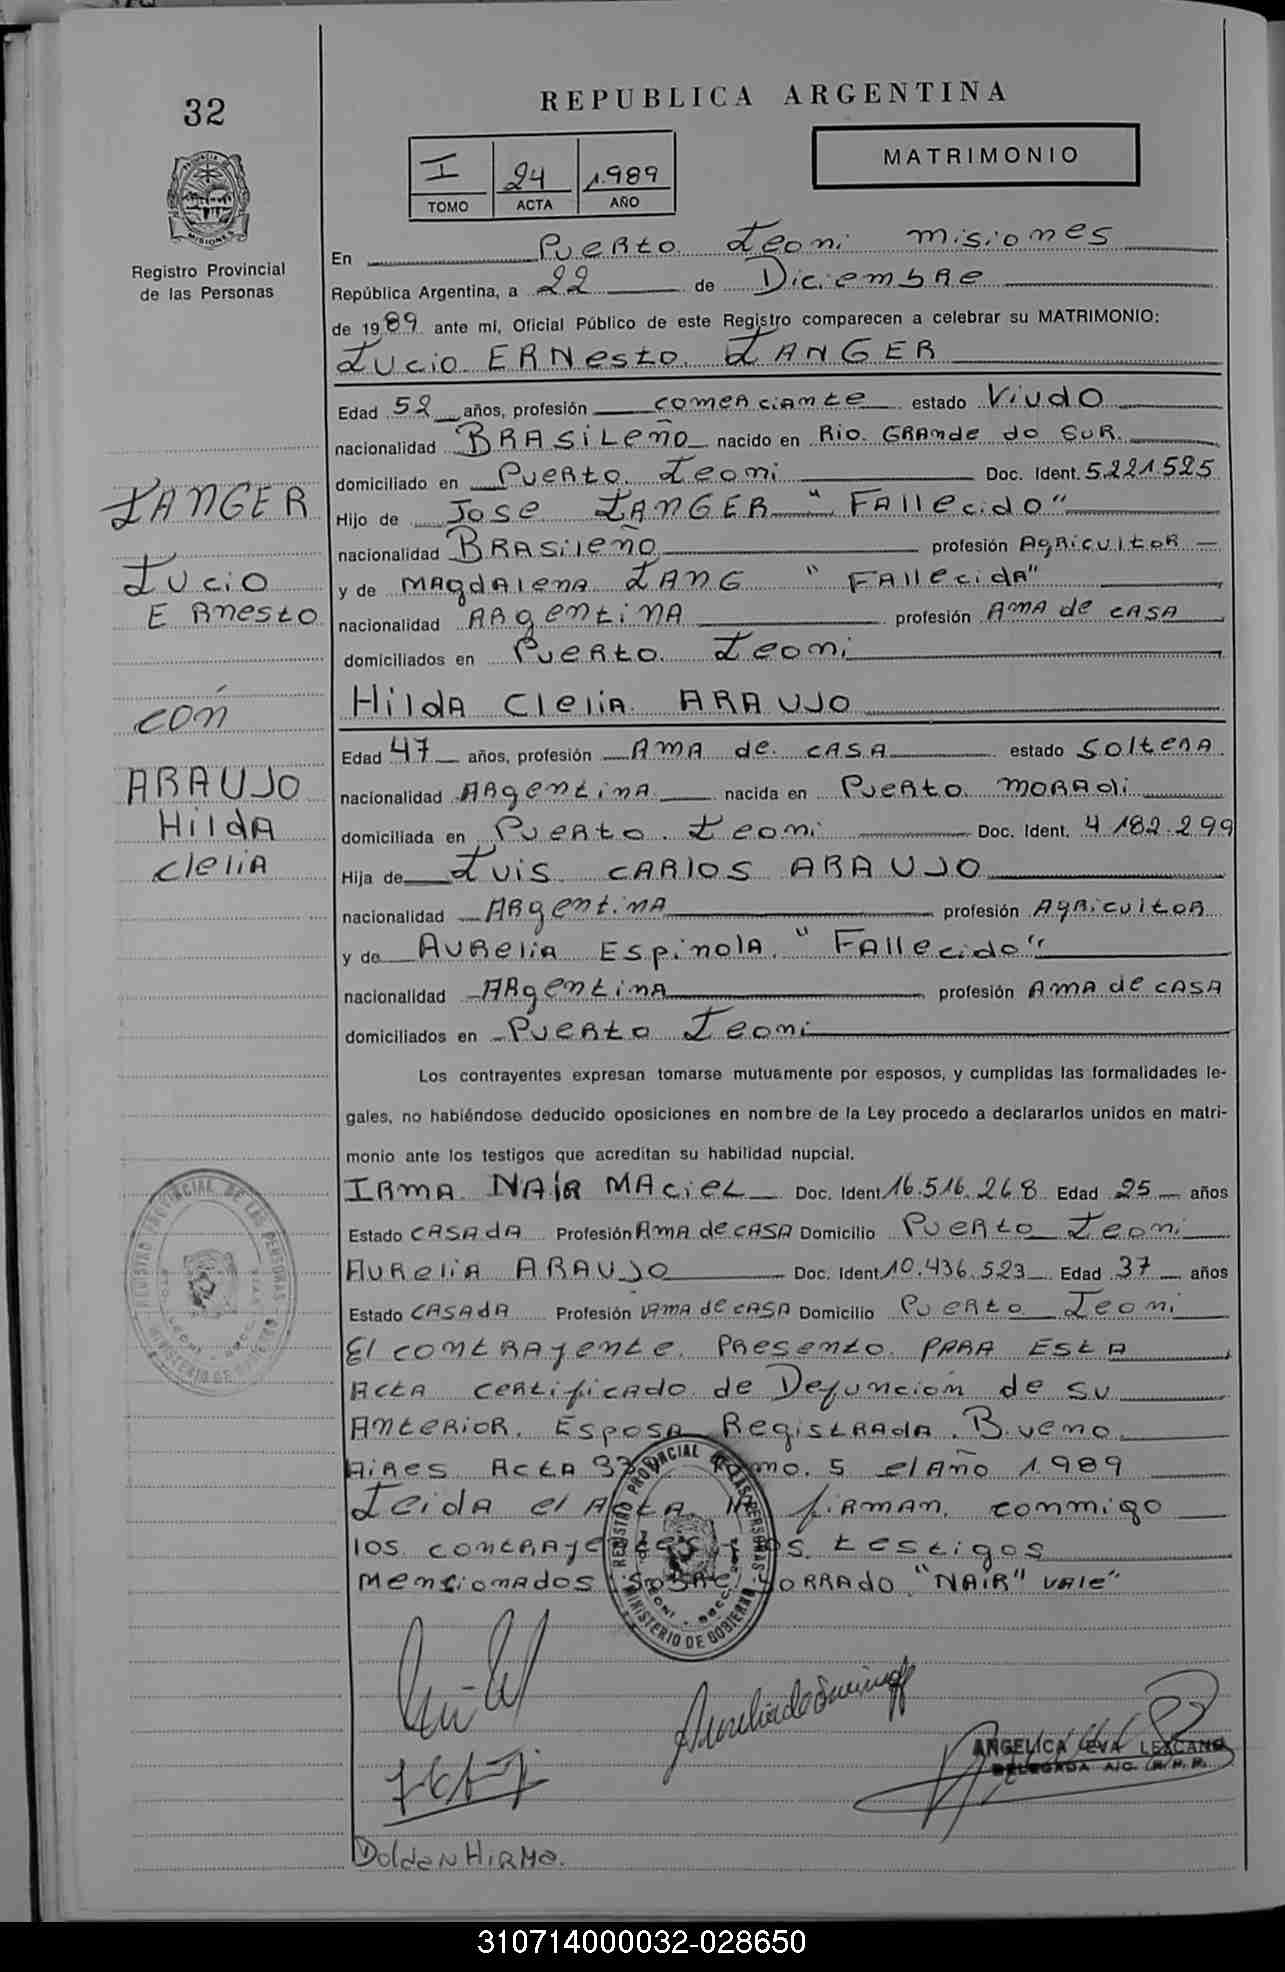 32
REPUBLICA ARGENTINA
MATRIMONIO
I 24 1.989
TOMO ACTA AÑO
PROVINCIA DE
MISIONES
Registro Provincial
de las Personas
En Puerto Leoni Misiones
República Argentina, a 22 de Diciembre
de 1989 ante mí, Oficial Público de este Registro comparecen a celebrar su MATRIMONIO:
Lucio ERNesto LANGER
Edad 52 años, profesión comerciante estado Viudo
nacionalidad BRASILEÑO nacido en Rio GRANde do SUR
domiciliado en Puerto Leoni Doc. Ident. 5.221.525
Hijo de Jose LANGER "Fallecido"
nacionalidad BRASileño profesión AgRicultoR
y de MAgdAlenA LANG "FAllecidA"
nacionalidad ARgentinA profesión AMA de CASA
domiciliados en Puerto Leoni
HildA CleliA ARAUJO
Edad 47 años, profesión AMA de CASA estado SolteRA
nacionalidad ARgentinA nacida en Puerto MORAdi
domiciliada en Puerto Leoni Doc. Ident. 4.182.299
Hija de Luis CARlos ARAUJO
nacionalidad ARgentinA profesión AgRicultoR
y de AuReliA EspinolA "FAllecido"
nacionalidad ARgentinA profesión AMA de CASA
domiciliados en Puerto Leoni
LANGER
Lucio
ERnesto
con
ARAUJO
HildA
CleliA
Los contrayentes expresan tomarse mutuamente por esposos, y cumplidas las formalidades le-
gales, no habiéndose deducido oposiciones en nombre de la Ley procedo a declararlos unidos en matri-
monio ante los testigos que acreditan su habilidad nupcial.
IRMA NAIR MAciel Doc. Ident 16.516.268 Edad 25 años
Estado CASAdA Profesión AMA de CASA Domicilio Puerto Leoni
AuReliA ARAUJO Doc. Ident 10.436.523 Edad 37 años
Estado CASAdA Profesión AMA de CASA Domicilio Puerto Leoni
El contRAyente Presento PARA EstA
ActA ceRtificado de Defuncion de su
AnteRioR EsposA RegistRAdA Bueno
AiRes ActA tomo 5 el Año 1.989
LeidA el ActA lA fiRman conmigo
los contRAyentes y los testigos
Mencionados SobRe boRRAdo "NAIR" vAle"
REGISTRO PROVINCIAL DE LAS PERSONAS
MINISTERIO DE GOBIERNO
REGISTRO PROVINCIAL DE LAS PERSONAS
MINISTERIO DE GOBIERNO
ANGELICA EVA LEZCANO
DELEGADA A/C R.P.P.
310714000032-028650